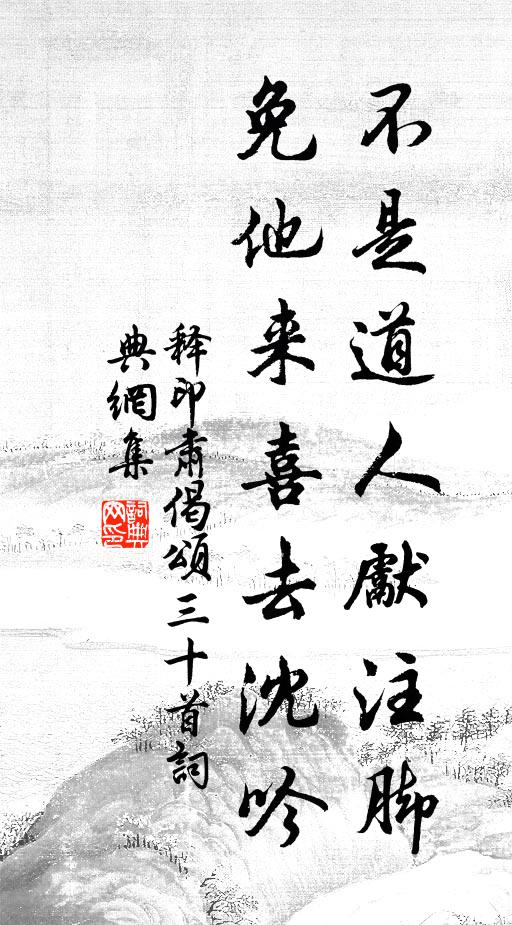 不是道人獻注脚
免他来喜去沈吟
释印肃偈頌三十首詞
典網集
詞典
网印